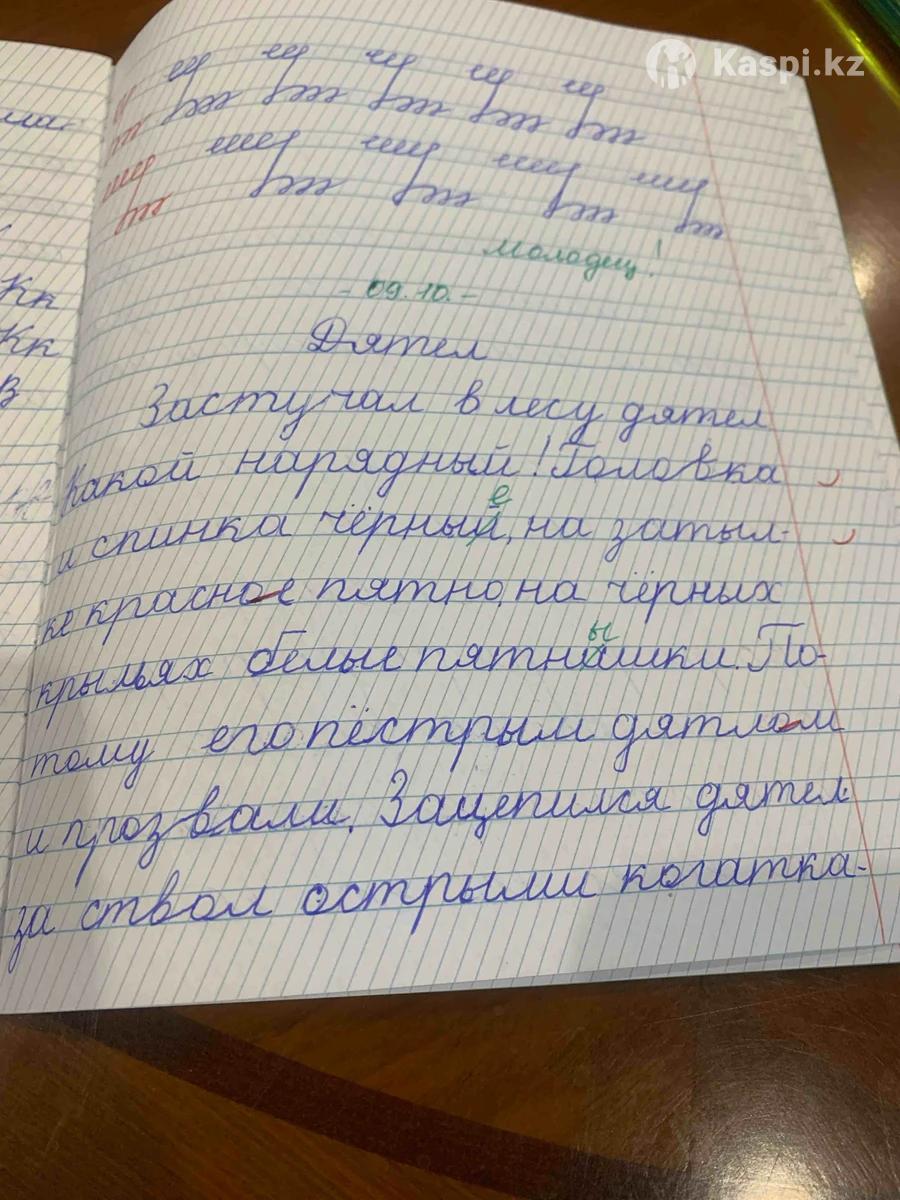 Kaspi.kz
ма-
Кк
Кк
В
Молодец!
- 09.10. -
Дятел
Застучал в лесу дятел
Какой нарядный! Головка
и спинка чёрный, на затыл-
е
ке красное пятно, на чёрных
крыльях белые пятнашки. По-
ы
тому его пёстрым дятлом
и прозвали. Зацепился дятел
за ствол острыми когатка-